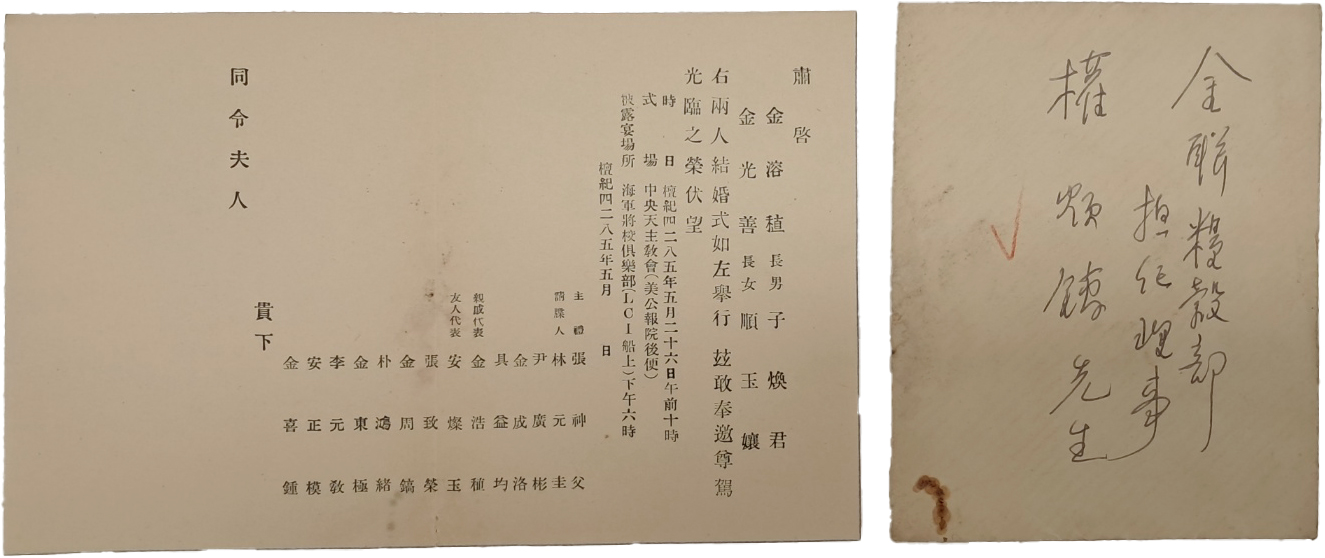 肅啓
金溶稙 長男 子煥君
金光善 長女 順玉孃
右兩人結婚式如左擧行玆敢奉邀尊駕
光臨之榮伏望
時日 檀紀四二八五年五月二十六日午前十時
式場 中央天主敎會(美公報院後便)
披露宴場所 海軍將校俱樂部(LCI船上)下午六時
檀紀四二八五年五月 日
主禮 張神父
請牒人 林元圭
尹廣彬
金成洛
具益均
親戚代表 金浩稙
友人代表 安燦玉
張致榮
金周鎬
朴鴻緖
金東極
李元敎
安正模
金喜鍾
貴下
同令夫人
金聯糧穀部
担任理事
權 先生